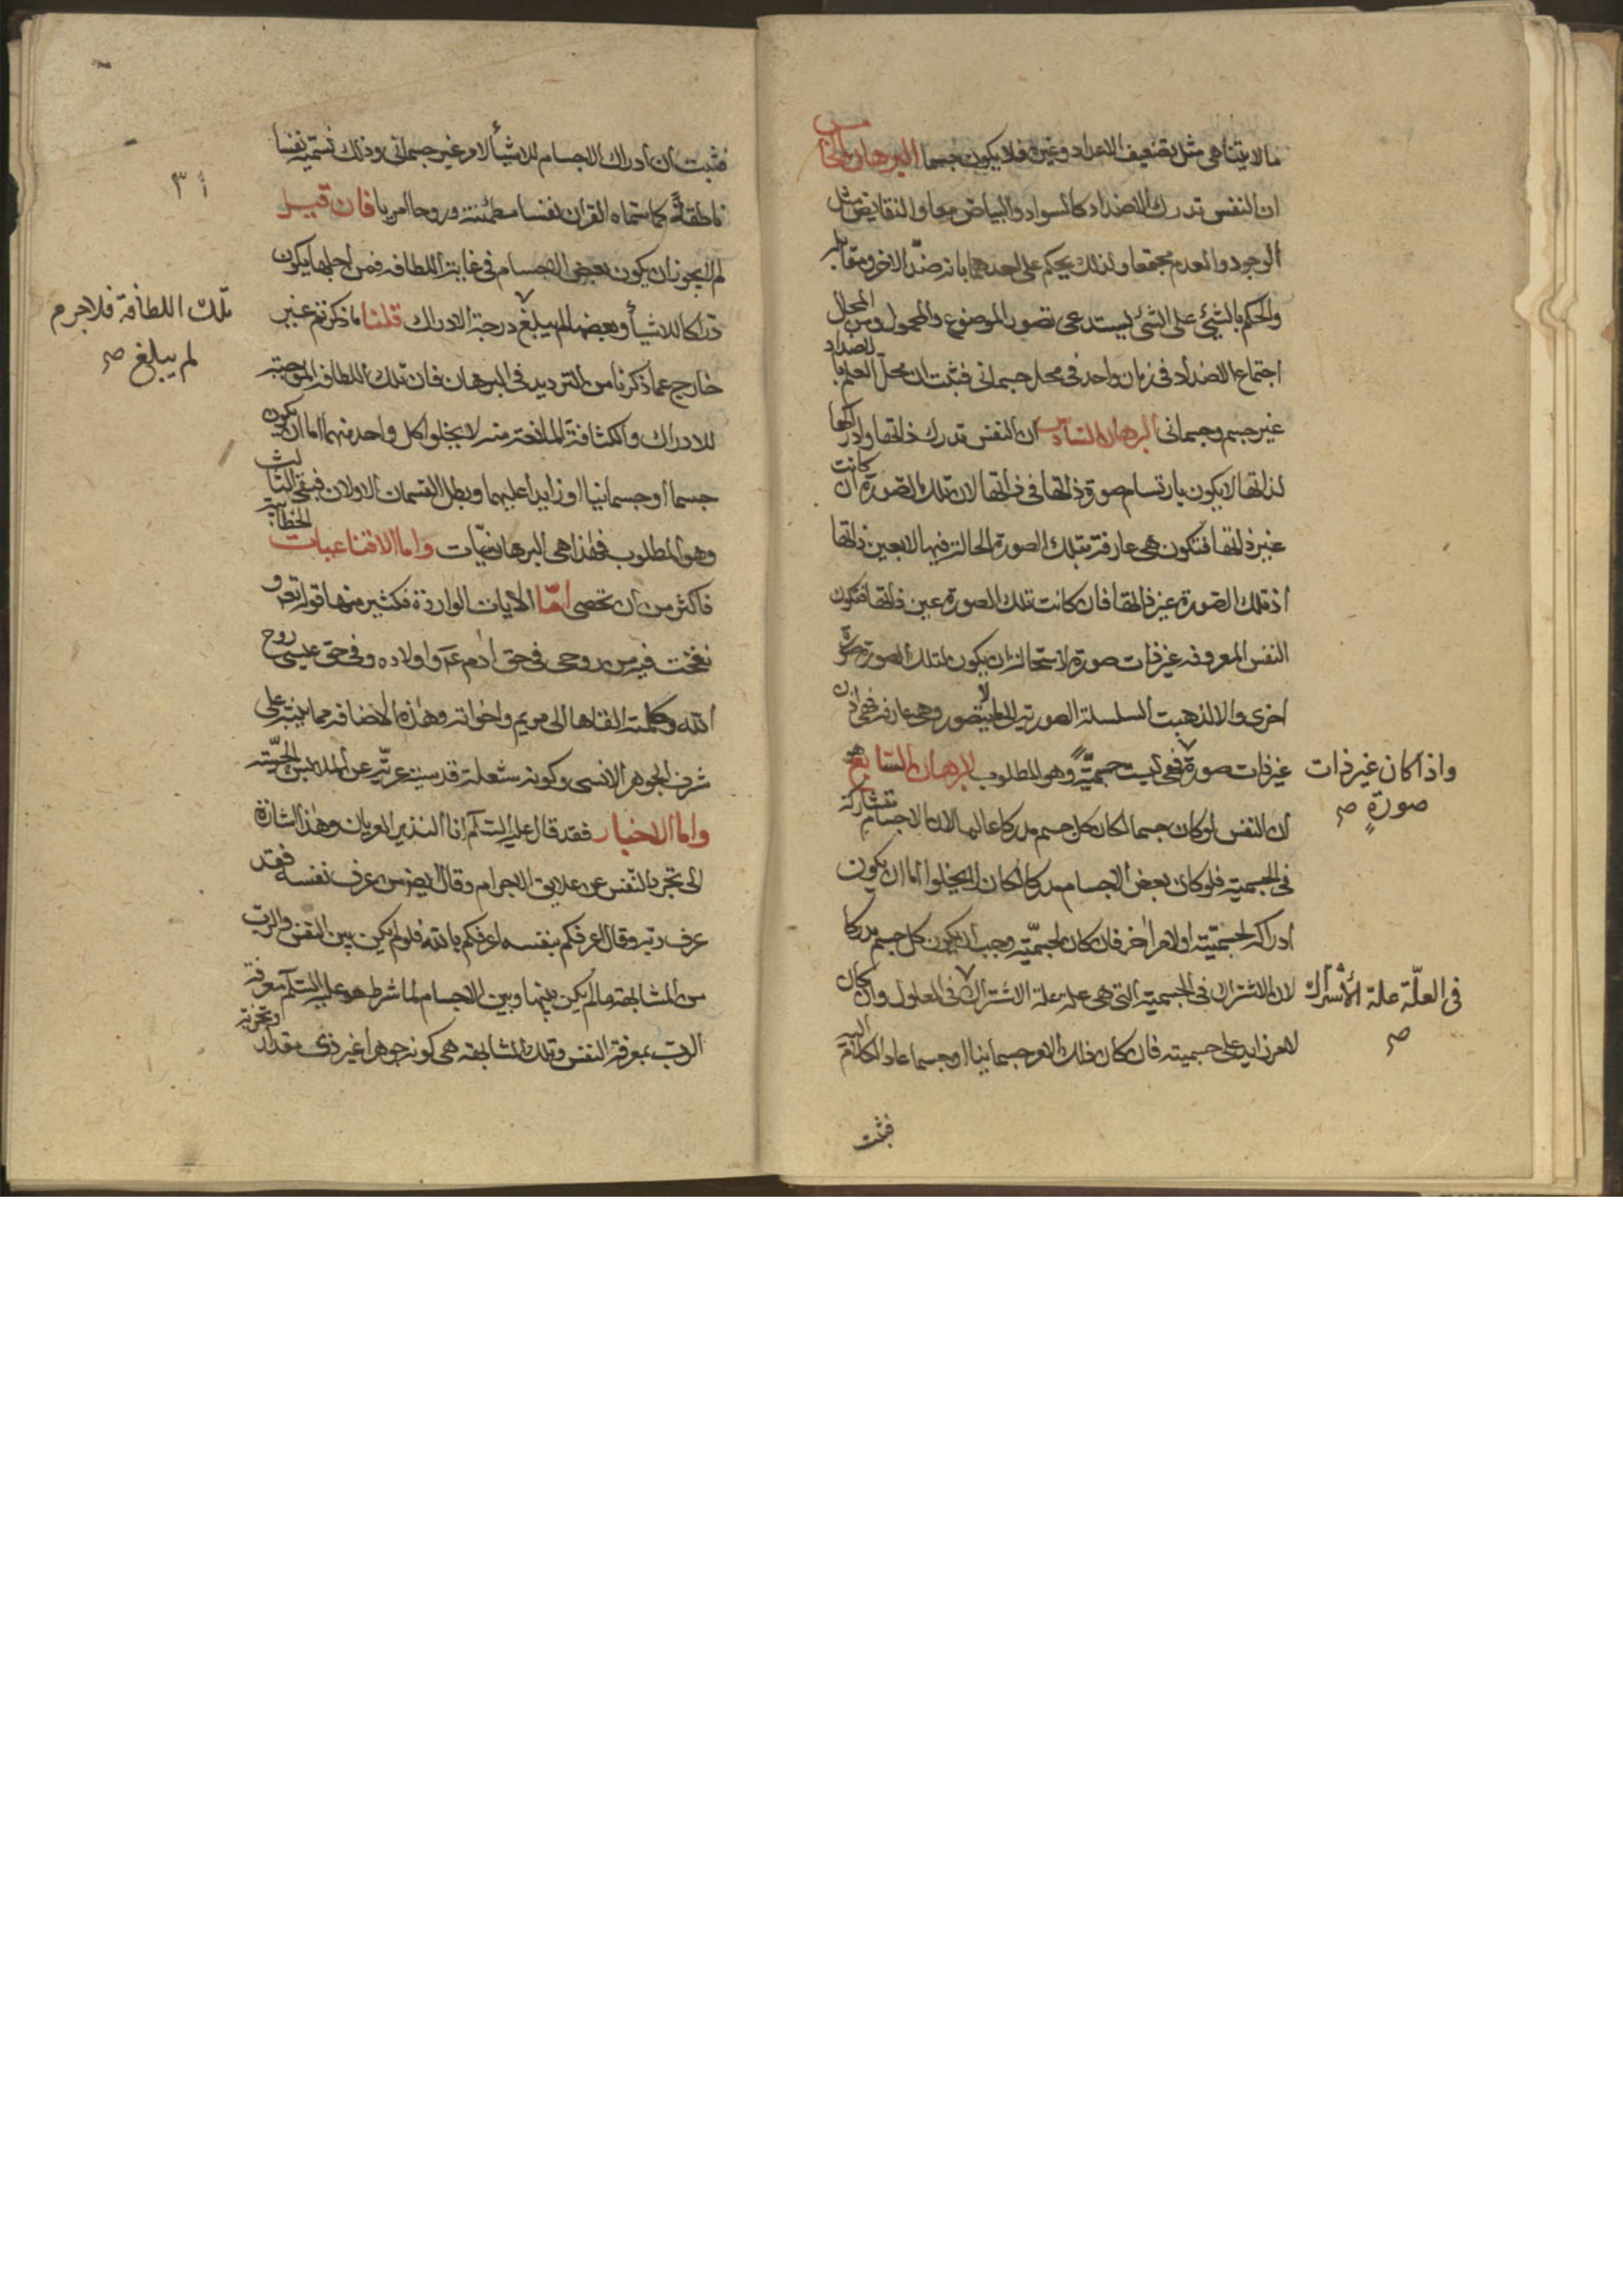 ما لا يتناهى مثل تضعيف الاعداد وغيره فلا يكون جسما البرهان الخامس
ان النفس تدرك الاضداد كالسواد والبياض معا والنقايض مثل
الوجود والعدم مجتمعا ولذلك يحكم على احدهما بانه ضد الاخر ومقابله
والحكم بالشئ على الشئ يستدعى تصور الموضوع والمحمول ومن المحال
اجتماع الاضداد فى زمان واحد فى محل جسمانى فثبت ان محل العلم بالاضداد
غير جسم وجسمانى البرهان السادس ان النفس تدرك ذاتها وادراكها
لذاتها لا يكون بارتسام صورة ذاتها فى ذاتها لان تلك الصورة ان كانت
غير ذاتها فتكون هى عارفة بتلك الصورة الحالة فيها لا بعين ذاتها
اذ تلك الصورة غير ذاتها فان كانت تلك الصورة عين ذاتها فتكون
النفس المعروفة غير ذات صورة لاستحالة ان يكون لتلك الصورة صورة
اخرى والا لذهبت السلسلة الصورية الى ما لا يتصور وهى عارفة فهى اذن
غير ذات صورة فهى ليست جسمية وهو المطلوب البرهان السابع هو
واذا كان غير ذات
صورةٍ صح
ان النفس لو كان جسما لكان كل جسم مدركا عالما لان الاجسام متشاركة
فى الجسمية فلو كان بعض الاجسام مدركا لكان لا يخلوا اما ان يكون
ادراكه لجسميته او لامر اخر فان كان لجسميّته وجب ان يكون كل جسم مدركا
لان الاشتراك فى الجسمية التى هى علة علة الاشتراك فى المعلول وان كان
فى العلّة علة الأشتراك
صح
لامر زايد على جسميته فان كان ذلك الامر جسمانيا او جسما عاد الكلام اليه
فثبت
أ ٣
فثبت ان ادراك الاجسام للاشيأ لامر غير جسمانى وذلك نسميه نفسا
ناطقةً كما سماه القران نفسا مطمئنة وروحا امريا فان قيل
لم لا يجوز ان يكون بعض الاجسام فى غاية اللطافه فمن اجلها يكون
درّاكا للاشيأ وبعضها لم يبلغ درجة الادراك قلنا ما ذكرتم غير
تلك اللطافة فلا جرم
لم يبلغ صح
خارج عما ذكرنا من الترديد فى البرهان فان تلك اللطافه الموجبة
للادراك والكثافة المانعة منه لا يخلوا كل واحد منهما اما ان يكون
جسما او جسمانيا او زايدا عليهما وبطل القسمان الاولان فبقى الثالث
وهو المطلوب فهذا هى البرهانيّات واما الاقناعيات الخطابية
فاكثر من ان تحصى امّا الايات الواردة فكثير منها قوله تعه و
نفخت فيه من روحى فى حق ادم عم واولاده وفى حق عيسى روح
الله وكلمته القاها الى مريم واخواته وهذه الاضافه مما ينبه على
شرف الجوهر الانسى وكونه شعلة قدسية عرية عن الملابس الحسّيه
واما الاخبار فقد قال عليه السّلم انا النذير العريان وهذا اشارة
الى تجرد النفس عن علايق الاجرام وقال ايضا من عرف نفسه فقد
عرف ربه وقال اعرفكم بنفسه اعرفكم بالله فلو لم يكن بين النفس والربّ
من المشابهة ما لم يكن بينها وبين الاجسام لما شرط هو عليه السّلم معرفة
الربّ بمعرفة النفس وتلك المشابهة هى كونه جوهرا غير ذى مقدار